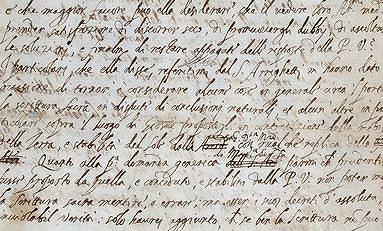 e che maggior favore può ella desiderare, che il vedere loro Alt.ze med.
prender satisfazione di discorrer seco, di promuovergli dubbi, di ascoltar
le soluzioni, e finalm. di restare appagati delle risposte della P. V.
I particolari che ella disse referitimi dal S. Arrighetti m hanno dato
occasione di tornar a considerare alcune cose in generale circa 'l portar
la scrittura sacra in dispute di conclusioni naturali, et alcun altre in
ticolare sopra 'l luogo di Giosue propostogli in contradizione della mobi
della terra, e stabilità del sole dalla gran con qualche replica della
Quanto alla p.a domanda generica di Mad. parmi ch prudenti
fusse proposto da quella, e conceduto, e stabilito dalla P. V. non poter ma
la scrittura sacra mentire, o errare; ma esser i suoi decreti d'assoluta
inviolabil verità: solo haurei aggiunto, ch se ben la scrittura no può